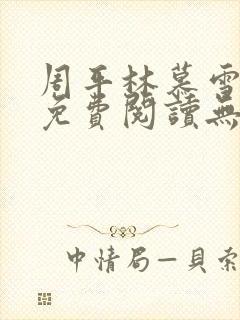 周平林慕雪
免費閱讀無
中情局—貝索